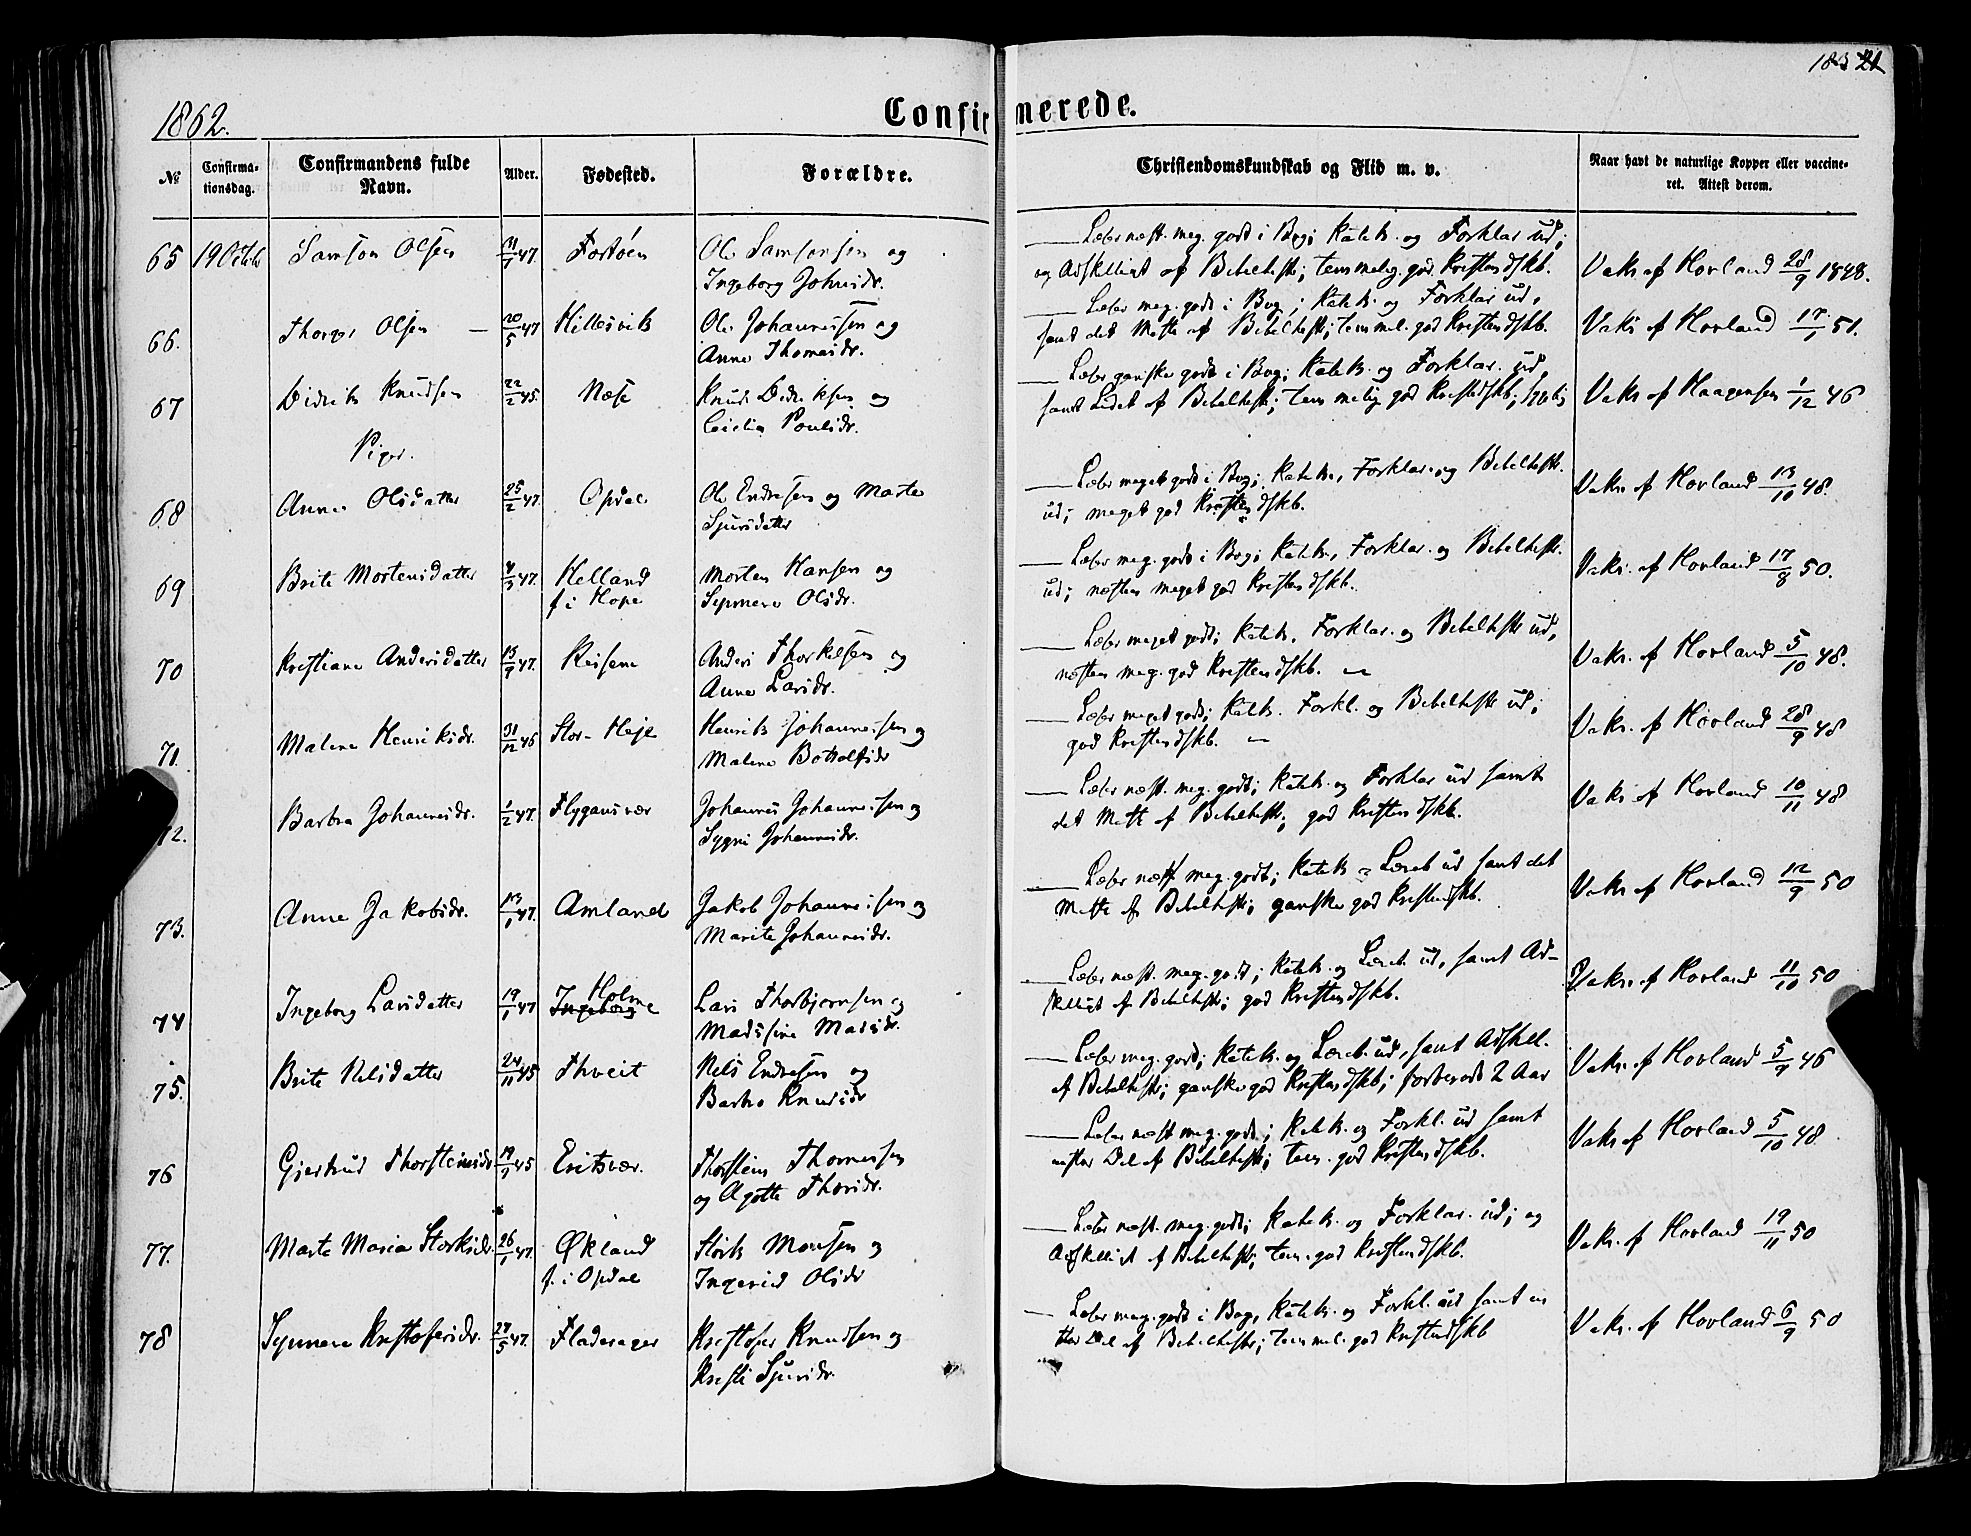 1862.
Confirmerede.
21
№
Confirma-
tionsdag.
Confirmandens fulde
Navn.
Alder.
Fødested.
Forældre.
Christendomskundskab og Flid m. v.
Naar havt de naturlige Kopper eller vaccine-
ret. Attest derom.
65 19 Octbr Samson Olsen 47. Ole Samsonsen og
Ingeborg Johnsdr.
Læser næst. meg. godt i Bog; Katek. og Forklar. ud;
og Adskelligt af Bibelhist; temmelig god Kristendskb.
Vaks af Hovland 28/9 1848.
66. Olsen 20/5 47 Hillesvik Ole Johannessen og
Anne Thomasdr.
Læser meg. godt i Bog; Katek. og Forklar ud,
samt det Meste af Bibelhist; temmel. god Kristendskb.
Vaks af Hovland 17/1 51.
67 Didrik Knudsen 22/2 45. Næse Knud Didriksen og
Cecilia Poulsdr.
Læser ganske godt i Bog; Katek. og Forklar. ud,
samt Lidet af Bibelhist; temmelig god Kristendskb;
Vaks af Haagensen 1/12 46
Piger.
68 Anna Olsdatter 25/2 47. Opdal Ole Endresen og Marte
Sjursdatter
Læser meget godt i Bog; Katek., Forklar. og Bibelhist.
ud; meget god Kristendskb.
Vaks. af Hovland 13/10 48.
69 Brite Mortensdatter 47. Helland
f. i Hope
Morten Hansen og
Synneve Olsdr.
Læser meg. godt i Bog; Katek., Forklar. og Bibelhist.
ud; næsten meget god Kristendskb.
Vaks. af Hovland 17/8 50.
70 Kristiane Andersdatter 47. Reisene Anders Thorkelsen og
Anne Larsdr.
Læser meget godt; Katek. Forklar. og Bibelhist ud,
næsten meg. god Kristendskb. —
Vaks. af Hovland 5/10 48.
71. Malene Henriksdr. 31/12 46 Stor-Høje Henrik Johannessen og
Malene Botholfsdr
Læser meget godt; Katek. Forkl. og Bibelhist ud;
god Kristendskb. —
Vaks. af Hovland 28/9 48
72. Barbra Johannesdr. 1/2 47. Flygansvær Johannes Johannessen og
Sygni Johannesdr.
Læser næst. meg. godt; Katek. og Forklar ud samt
det Meste af Bibelhist; god Kristendskb.
Vaks af Hovland 10/11 48
73. Anne Jakobsdr. 13/1 47. Amland Jakob Johannessen og
Marite Johannesdr.
Læser næst meg. godt; Katek. og Læreb ud samt det
Meste af Bibelhist; ganske god Kristendskb.
Vaks af Hovland 12/9 50
74 Ingeborg Larsdatter 19/1 47 Holme
Ingeborg
Lars Thorbjørnsen og
Madssine Madsdr.
Læser næst. meg. godt; Katek. og Læreb. ud, samt Ad-
skelligt af Bibelhist; god Kristendskb.
Vaks. af Hovland 11/10 50
75. Brite Nelsdatter 24/11 45 Thveit Nels Endresen og
Barbro Knudsdr
Læser meg. godt; Katek. og Læreb. ud, samt Adskel.
af Bibelhist; ganske god Kristendskb; forberedt 2 Aar
Vaks. af Hovland 46
76 Gjertrud Thorsteinsdr 45 Thorstein Thomassen
og Agotte
Læser næst meg. godt; Katek. og Forkl. ud samt
Del af Bibelhist; tem. god Kristendskb.
Vaks af Hovland 5/10 48
77. Marte Maria Storksdr. 26/1 47. Økland
f. i Opdal
Størk Monsen og
Ingerid Olsdr
Læser næst. meg. godt; Katek. og Forklar. ud; og
Adskelligt af Bibelhist; tem. god Kristendskb.
Vaks. af Hovland 19/11 50
78 Synneve Kristofersdr. 47. Fladerager Kristofer Knudsen og
Kristi Sjursdr.
Læser meg. godt i Bog, Katek. og Forkl. ud samt en
Del af Bibelhist; temmel. god Kristendskb
Vaks. af Hovland 6/9 50